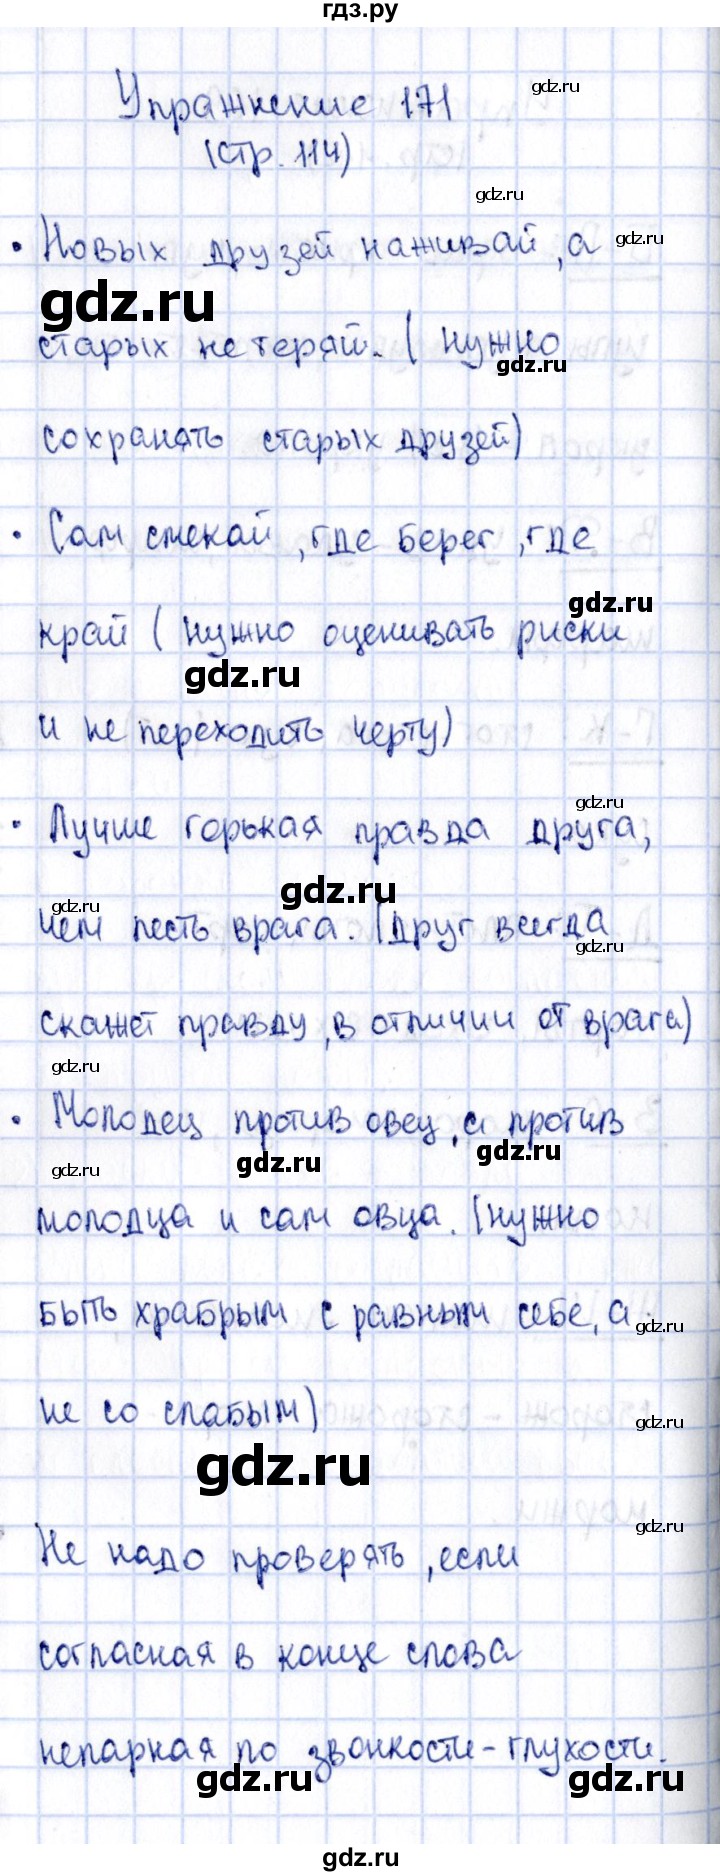 гдз.ру
Упражнение 171
gdz.ru
(стр. 114)
gdz.ru
• Новых друзей наживай, а
gdz.ru
gdz.ru
старых не теряй. (нужно
gdz.ru
сохранять старых друзей)
• Сам смекай, где берег, где
gdz.ru
край (нужно оценивать риски
gdz.ru
и не переходить черту)
gdz.ru
• Лучше горькая правда друга,
gdz.ru
gdz.ru
чем лесть врага. (друг всегда
gdz.ru
скажет правду, в отличии от врага)
gdz.ru
• Молодец против овец, а против
gdz.ru
gdz.ru
gdz.ru
молодца и сам овца. (нужно
быть храбрым с равным себе, а
gdz.ru
не со слабым)
gdz.ru
gdz.ru
gdz.ru
Не надо проверять, если
согласная в конце слова
непарная по звонкости-глухости.
gdz.ru
gdz.ru
gdz.ru